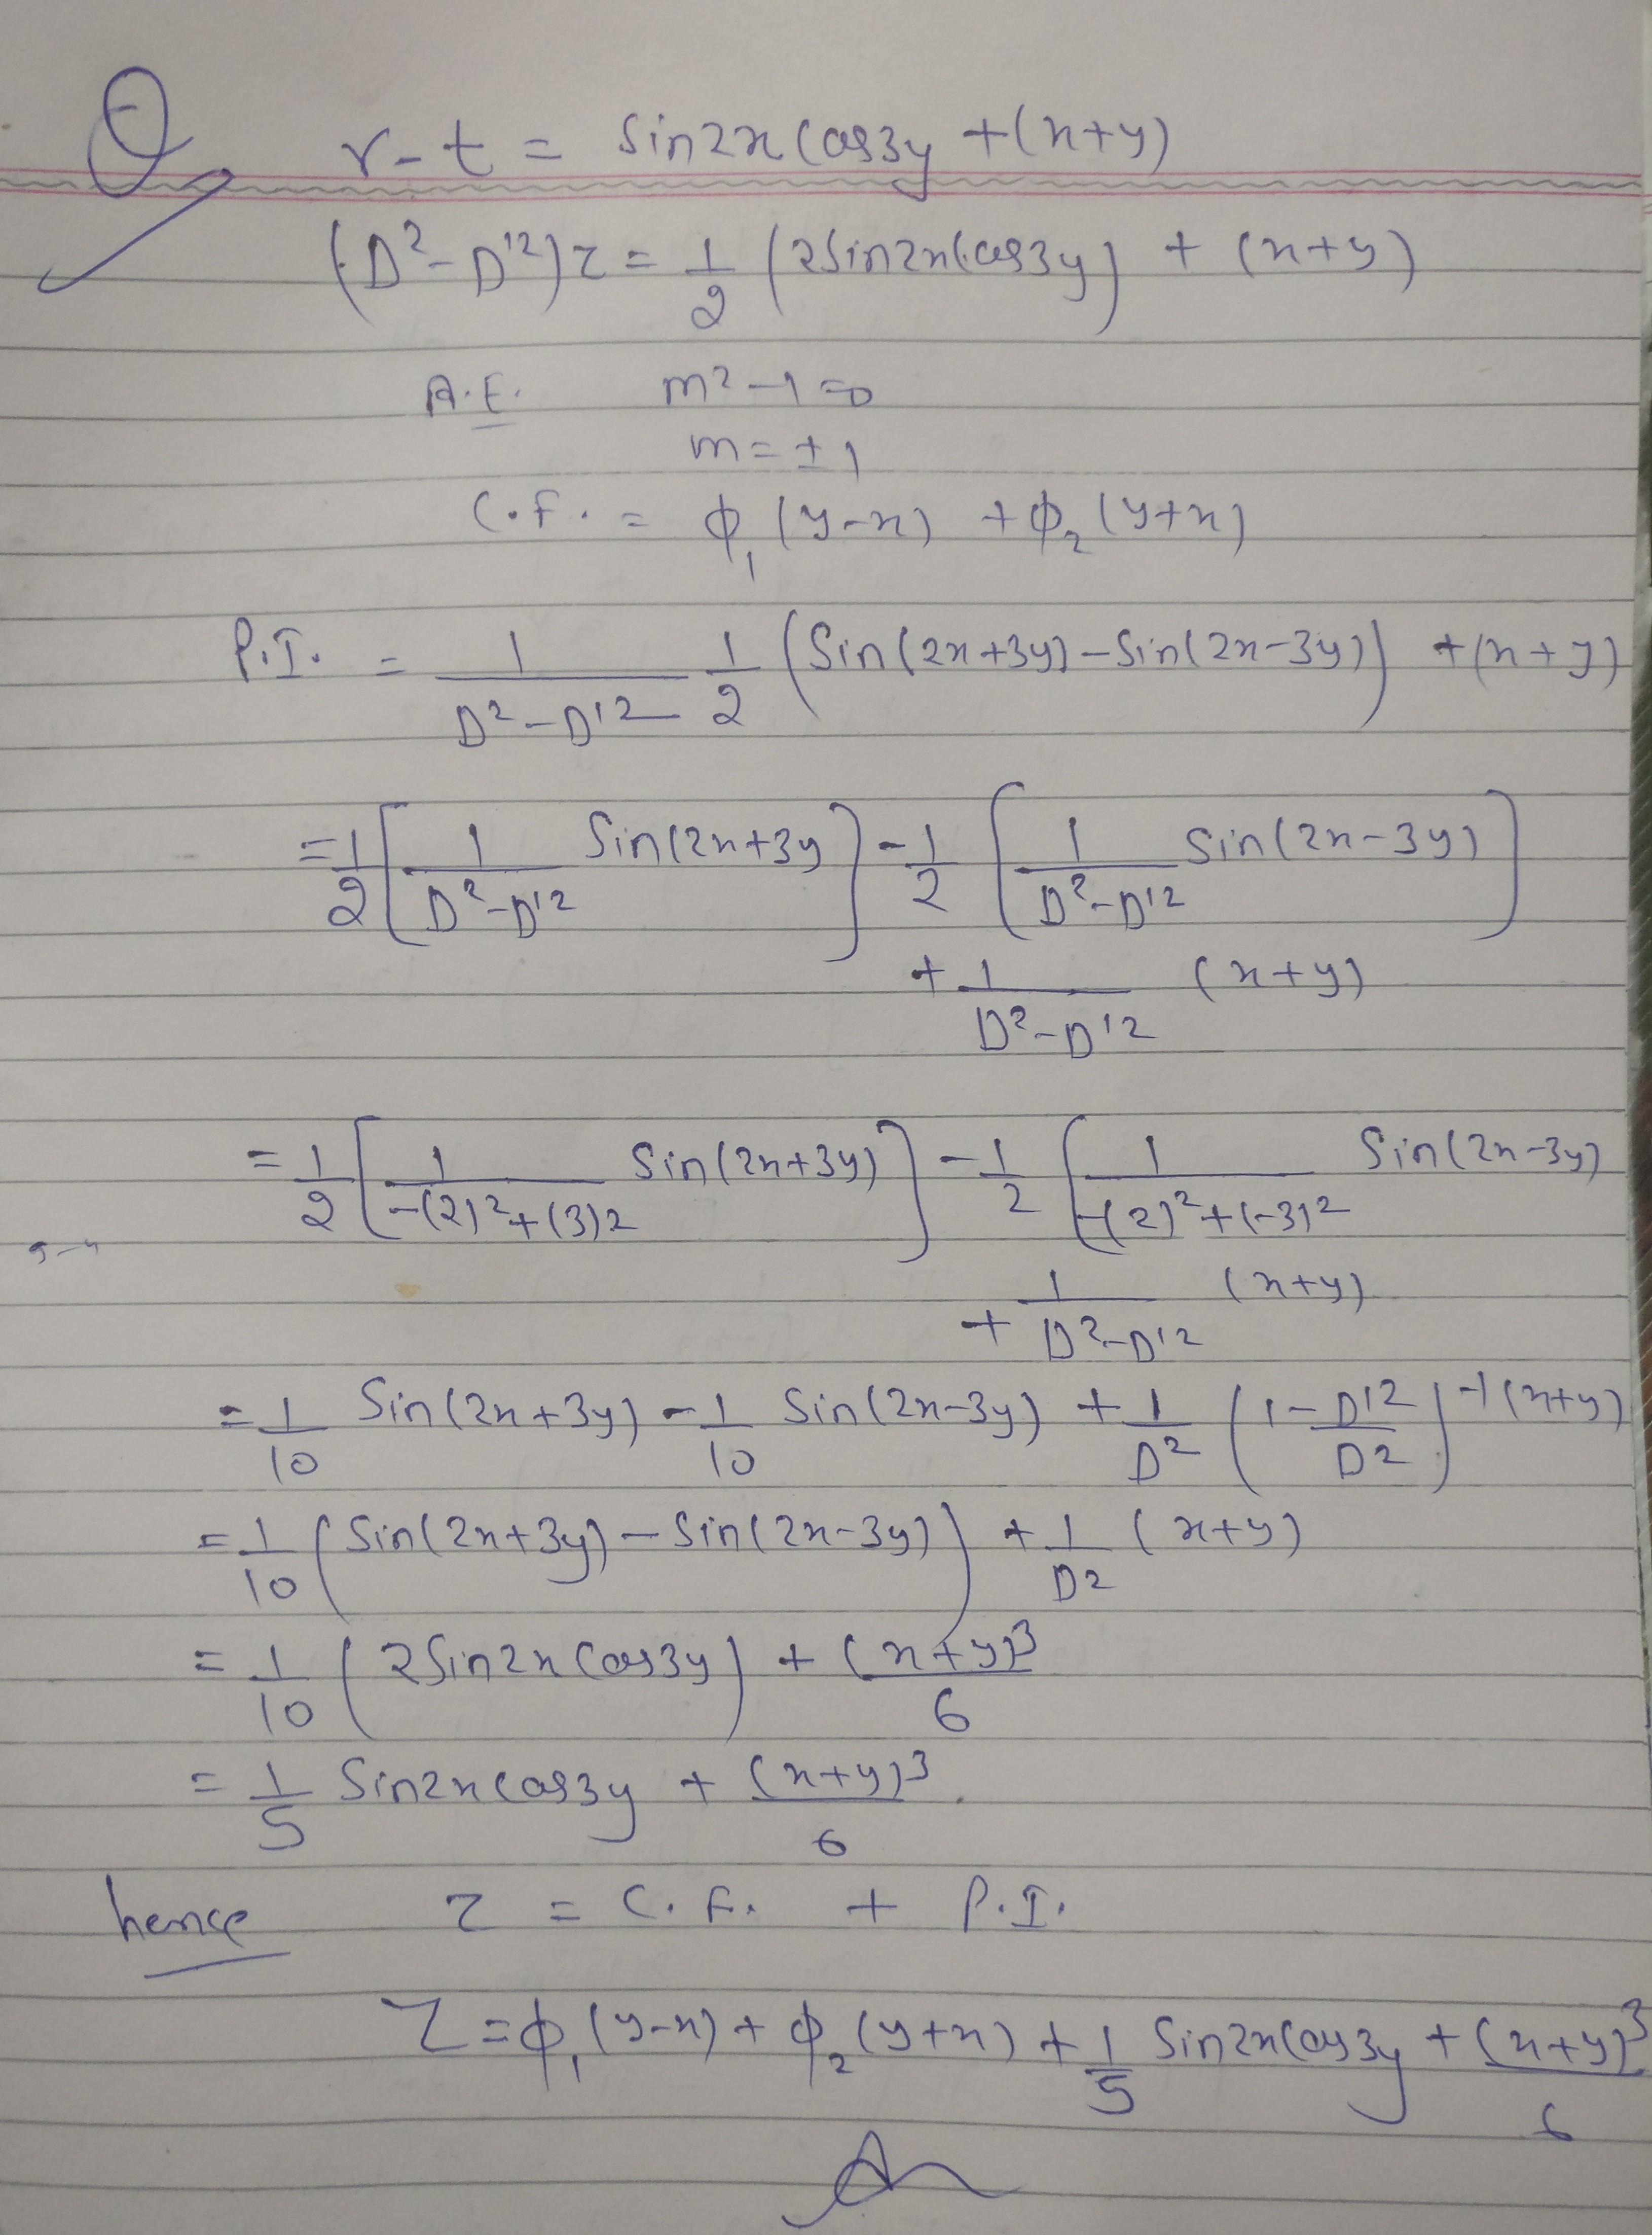 Q r-t = Sin2x Cos3y +(x+y)
(D²-D'²)z = 1/2 (2Sin2xCos3y) + (x+y)
A.E. m²-1=0
m=±1
C.F. = ϕ₁(y-x) +ϕ₂(y+x)
P.I. = 1/(D²-D'²) 1/2 (Sin(2x+3y)-Sin(2x-3y)) +(x+y)
=1/2[1/(D²-D'²) Sin(2x+3y] -1/2 [1/(D²-D'²) Sin(2x-3y)]
+ 1/(D²-D'²) (x+y)
=1/2[1/(-(2)²+(3)2) Sin(2x+3y)] -1/2 [1/(-(2)²+(-3)2) Sin(2x-3y)
+ 1/(D²-D'²) (x+y)
=1/10 Sin(2x+3y) -1/10 Sin(2x-3y) + 1/D² (1-D'²/D²)⁻¹(x+y)
=1/10 (Sin(2x+3y)-Sin(2x-3y)) + 1/D2 (x+y)
= 1/10 (2Sin2x Cos3y) + (x+y)³/6
= 1/5 Sin2xCos3y + (x+y)³/6.
hence z = C.F. + P.I.
Z=ϕ₁(y-x)+ϕ₂(y+x)+1/5 Sin2xCos3y+(x+y)³/6